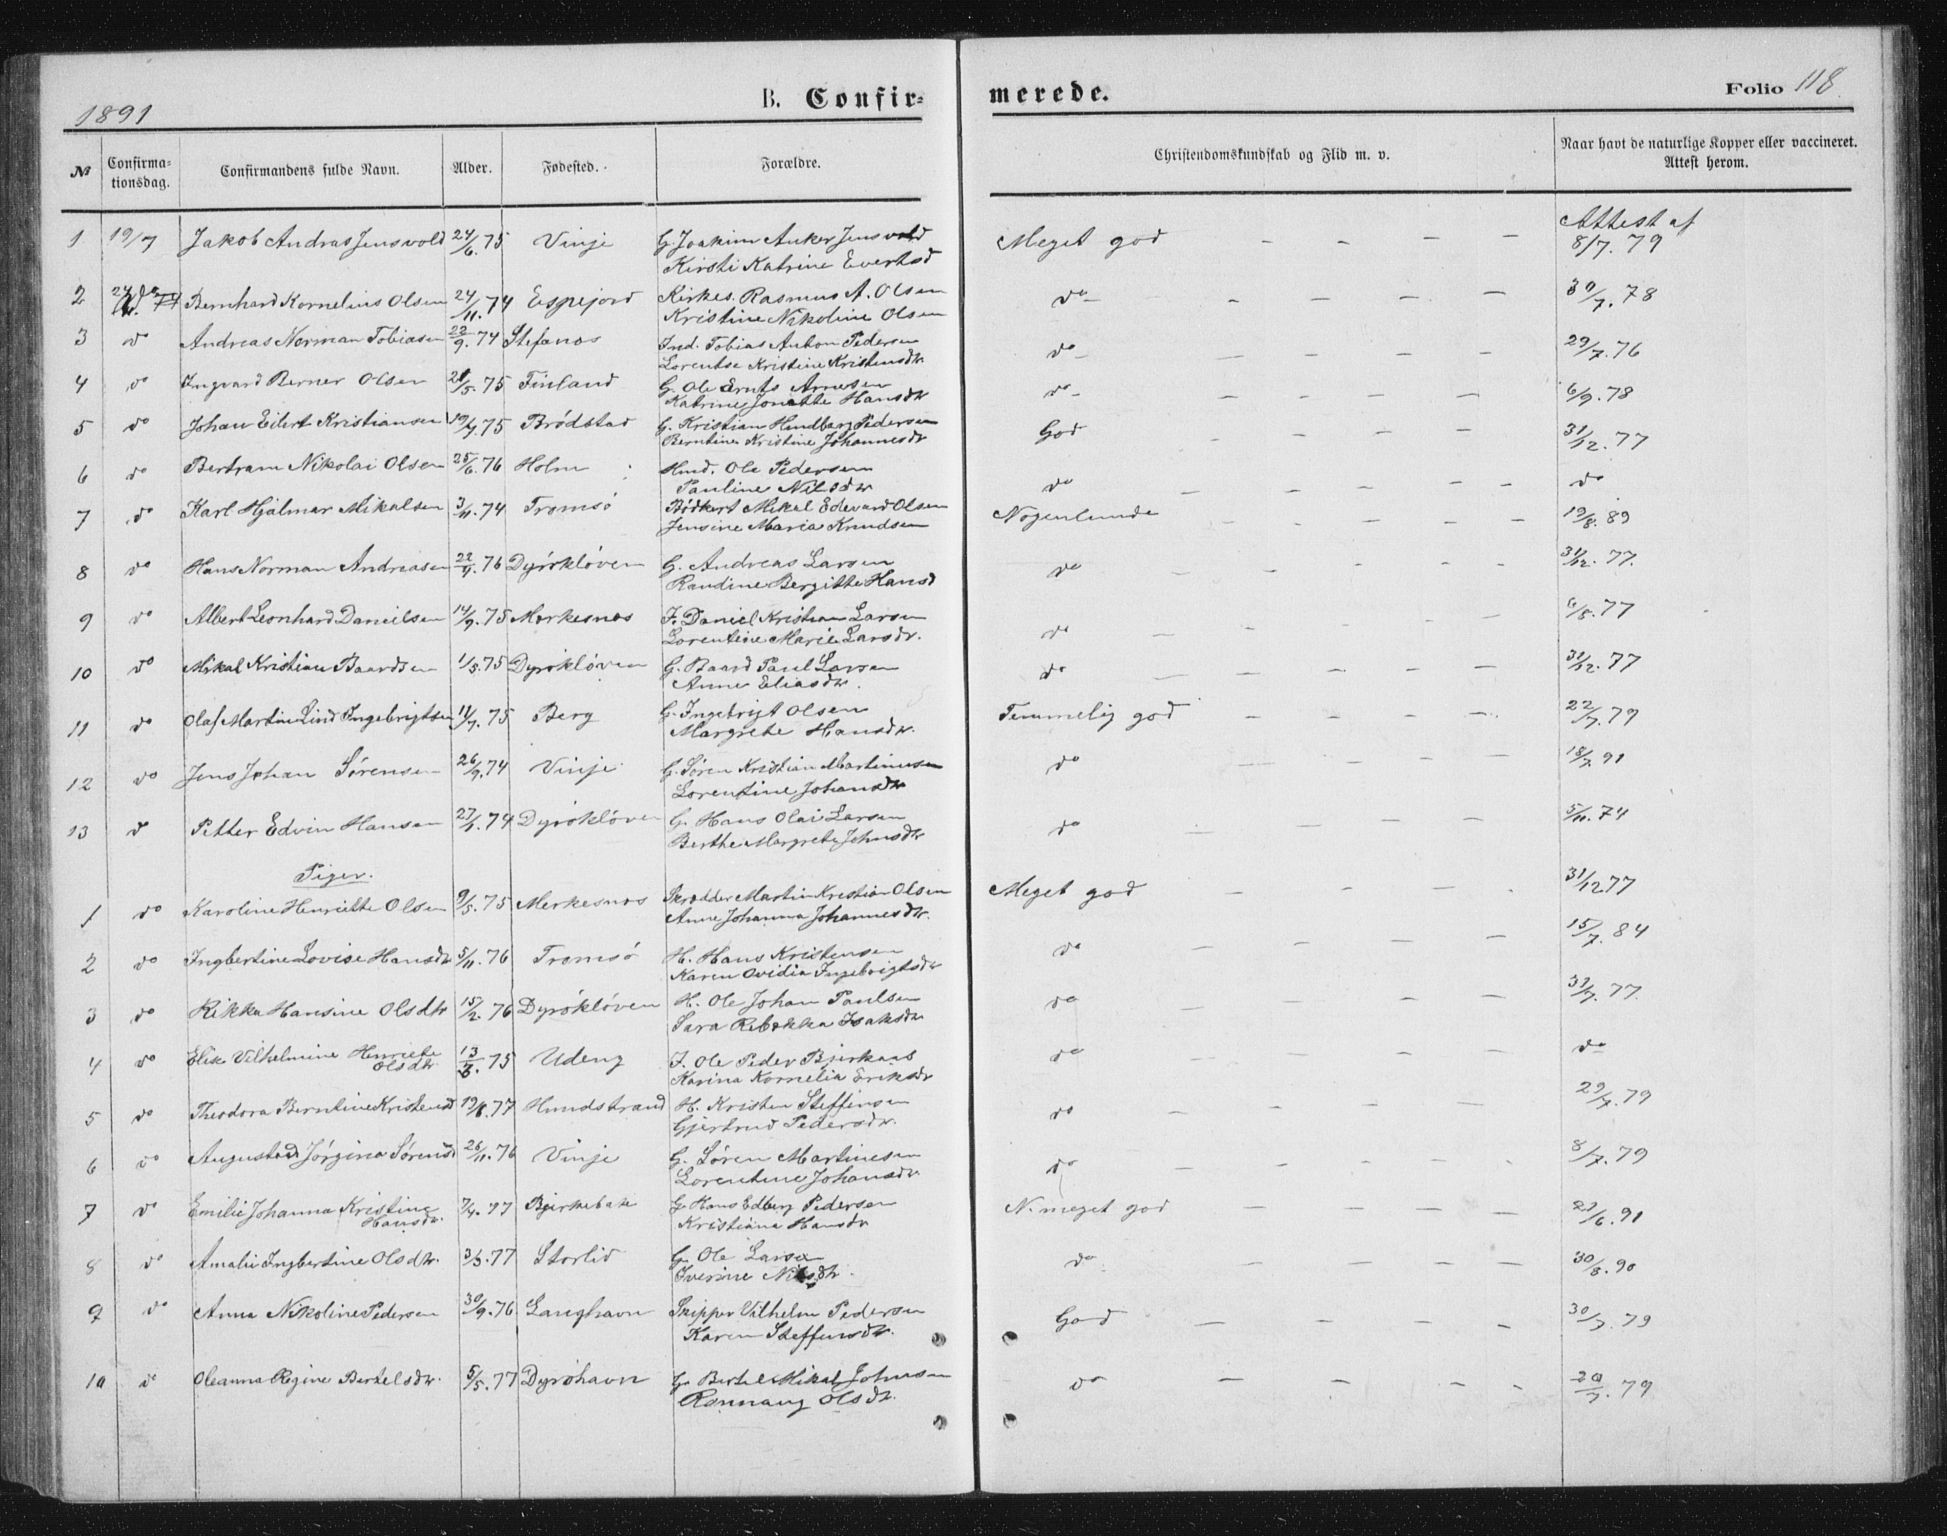 1891
B. Confir-
merede.
Folio 118
№ Confirma-tionsdag. Confirmandens fulde Navn. Alder. Fødested. Forældre. Christendomskundskab og Flid m. v. Naar havt de naturlige Kopper eller vaccineret. Attest herom.
1 19/7 Jakob Andras Jensvold 24/6.75 Vinje G. Joakim Anker Jensvold Meget god - - - - Attest af 8/7.79
Kirsti Katrine Evertsd
2 Bernhard Kornelius Olsen 24/11.74 Espejord Kirkes. Rasmus A. Olsen do - - - - - 30/7.78
Kristine Nikoline Olsen
3 do Andreas Norman Tobiasen 22/9.74 Stefanes Ind. Tobias Anton Pedersen do - - - - - 29/7.76
Lorentse Kristine Kristensdtr
4 do Ingvard Berner Olsen 21/5.75 Finland G. Ole Ernts Arnesen do - - - - - 6/9.78
Katrine Jonette Hansdtr
5 do Johan Eilert Kristiansen 19/7.75 Brødstad G. Kristian Hindberg Pedersen God - - - - 31/12.77
Berntine Kristine Johannesdtr
6 do Bertram Nikolai Olsen 25/6.76 Holm Hmd. Ole Pedersen do - - - - do
Pauline Nilsdtr
7 do Karl Hjalmar Mikalsen 3/11.74 Tromsö Bödkert Mikal Edevard Olsen Nogenlunde - - - - 19/8.89
Jensine Maria Knudsen
8 do Hans Norman Andreasen 22/4.76 Dyröklöven G. Andreas Larsen do - - - - 31/12.77.
Randine Bergitte Hansd
9 do Albert Leonhard Danielsen 14/9.75 Merkesnes F. Daniel Kristian Larsen do - - - - 6/8.77
Lorentine Marie Larsdr.
10 do Mikal Kristian Baardsen 1/5.75 Dyröklöven G. Baard Paul Larsen do - - - - 31/12.77
Anne Eliasdtr.
11 do Olaf Martin Lind Ingebrigtsen 11/7.75 Berg G. Ingebrigt Olsen Temmelig god - - - - 22/7.79
Margrete Hansdr.
12 do Jens Johan Sørensen 26/9.74 Vinje G. Søren Kristian Martinusen do - - - - 18/7.91
Lorentine Johansdtr
13 do Petter Edvin Hansen 27/1.74 Dyröklöven G. Hans Olai Larsen do - - - - 5/11.74
Berthe Margrete Johnsdtr
Piger.
1 do Karoline Henriette Olsen 9/5.75 Merkesnes Skrædder Martin Kristian Olsen Meget god - - - - 31/12 77
Anne Johanna Johannesdtr.
2 do Ingbertine Lovise Hansdtr 5/11.76 Tromsö H. Hans Kristensen do - - - - 15/7.84
Karen Ovidia Ingebrigtsdtr
3 do Rikka Hansine Olsdtr 15/2.76 Dyröklöven H. Ole Johan Paulsen do - - - - 31/7.77
Sara Rebekka Isaksdtr
4 do Elise Vilhelmine Henriete 13/3.75 Udeng F. Ole Peder Bjerkaas do - - - - do
Olsdtr Karina Kornelia Eriksdtr
5 do Theodora Berntine Kristensd 19/8.77 Hundstrand H. Kristen Steffensen do - - - - 29/7.79
Gjertrud Pedersdr.
6 do Augusta Jørgine Sørensd 26/11.76 Vinje G. Søren Martinesen do - - - - 8/7.79
Lorentine Johansdtr
7 do Emilie Johanna Kristine 7/4.77 Bjerkebake G. Hans Edberg Pedersen N. meget god - - - - 27/6.91
Hansdr. Kristiana Hansdtr
8 do Amalie Ingbertine Olsdtr. 3/3.77 Storlid G. Ole Larsen do - - - - 30/8.90
Iverine Nilsdtr.
9 do Anna Nikoline Pedersen 30/9.76 Langhavn Skipper Vilhelm Pedersen God - - - - 30/7.79
Karen Steffensdtr.
10 do Oleanna Regine Bertelsdtr. 5/5.77 Dyröhavn G. Bertel Mikal Johnsen do - - - - 29/7.79
Rønnaug Olsdtr.